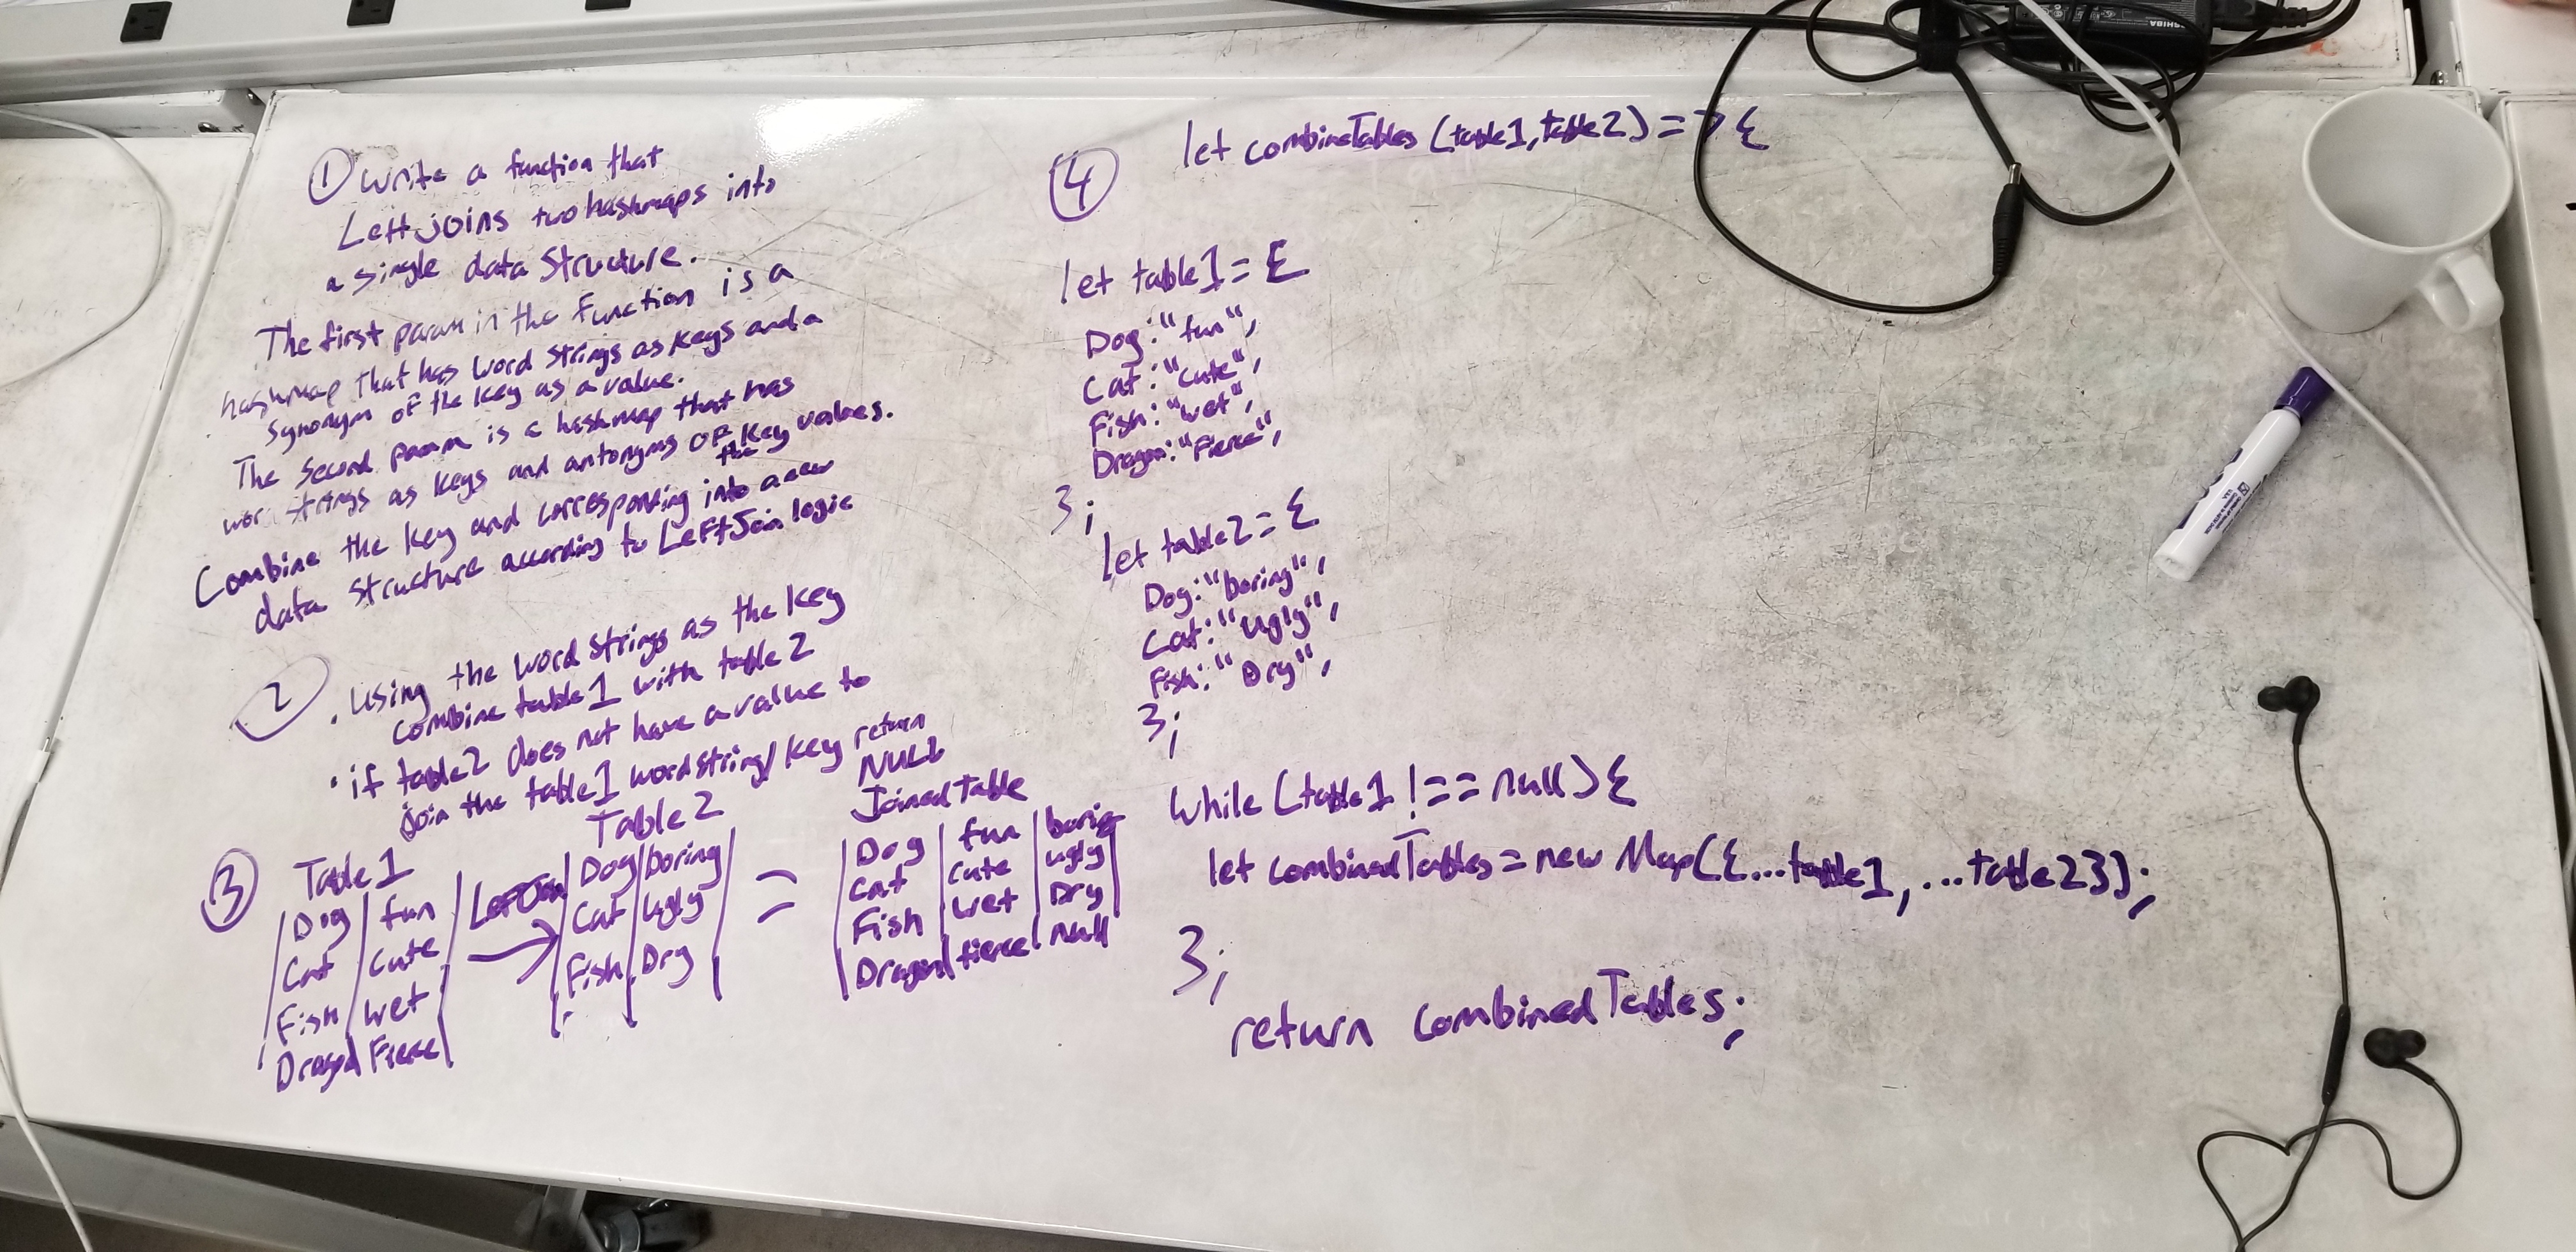 ① Write a function that
Left joins two hashmaps into
a single data Structure.
The first param in the Function is a
hashmap that has word strings as keys and a
synonym of the key as a value.
The Second param is a hashmap that has
strings as keys and antonyms of key values.
Combine the key and corresponding the into a new
data Structure according to LeftJoin logic
2
. Using the word strings as the key
combine table1 with table2
. if table2 does not have a value to
join the table1 wordstring/key return
NULL
③ Table1
Table2
Joined Table
Dog | fun
Cat | cute
Fish | wet
Dragon | Fierce
LeftJoin
Dog | boring
Cat | ugly
Fish | Dry
=
Dog | fun | boring
Cat | cute | ugly
Fish | wet | Dry
Dragon | fierce | null
④
let combineTables (table1, table2) => {
let table1 = {
Dog: "fun",
Cat: "cute",
Fish: "wet",
Dragon: "Fierce",
};
let table2 = {
Dog: "boring",
Cat: "ugly",
Fish: "Dry",
};
while (table1 !== null) {
let combinedTables = new Map({...table1, ...table2});
};
return combinedTables;